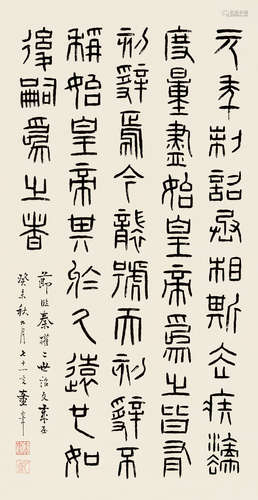 元年制詔丞相斯去疾灋
度量盡始皇帝爲之皆有
刻辭焉今襲號而刻辭不
稱始皇帝其於久遠也如
後嗣爲之者
節臨秦權二世詔文
癸未秋九月七十